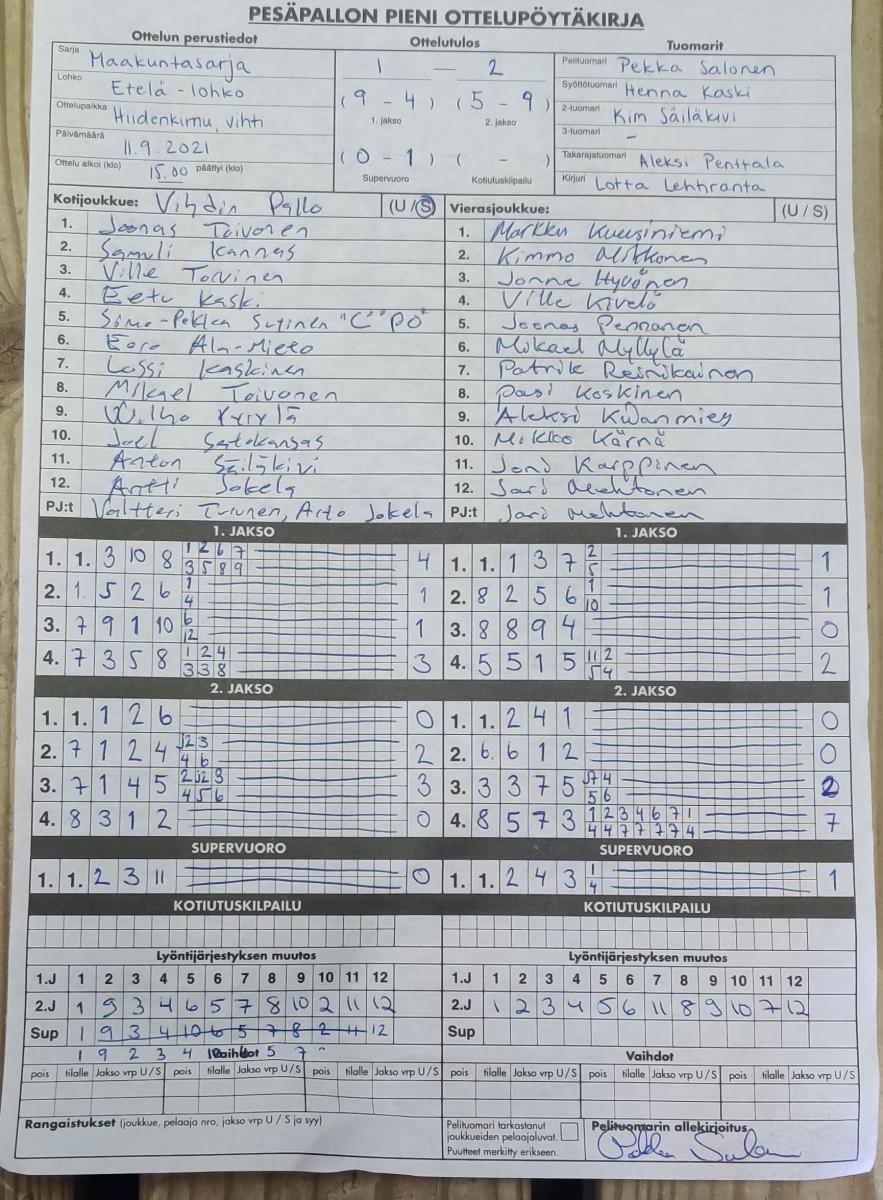 PESÄPALLON PIENI OTTELUPÖYTÄKIRJA
Ottelun perustiedot Ottelutulos Tuomarit
Sarja Maakuntasarja
Lohko Etelä-lohko
Ottelupaikka Hiidenkirnu, Vihti
Päivämäärä 11.9.2021
Ottelu alkoi (klo) 15.00 päättyi (klo)
1 — 2
(9 - 4) (5 - 9)
1. jakso 2. jakso
(0 - 1) ( - )
Supervuoro Kotiutuskilpailu
Pelituomari Pekka Salonen
Syöttötuomari Henna Kaski
2-tuomari Kim Säiläkivi
3-tuomari -
Takarajatuomari Aleksi Penttala
Kirjuri Lotta Lehtiranta
Kotijoukkue: Vihdin Pallo (U / S)
1. Joonas Toivonen
2. Samuli Kannas
3. Ville Torvinen
4. Eetu Kaski
5. Simo-Pekka Sutinen "C" PO
6. Eero Ala-Mieto
7. Lassi Kaskinen
8. Mikael Toivonen
9. Wilho Yrylä
10. Joel Satokangas
11. Anton Säiläkivi
12. Antti Jokela
PJ:t Valtteri Turunen, Arto Jokela
Vierasjoukkue: (U / S)
1. Markku Kuusiniemi
2. Kimmo
3. Jonne Hyvönen
4. Ville Kivelä
5. Joonas Pennanen
6. Mikael Myllylä
7. Patrik Reinikainen
8. Pasi Koskinen
9. Aleksi
10. Mikko Kärnä
11. Joni Karppinen
12. Jari Mehtonen
PJ:t Jari Mehtonen
1. JAKSO 1. JAKSO
1. 1. 3 10 8 1 2 6 7 4 1. 1. 1 3 7 2 1
3 5 8 9 5
2. 1. 5 2 6 1 1 2. 8 2 5 6 1 1
4 10
3. 7 9 1 10 6 1 3. 8 8 9 4 0
12
4. 7 3 5 8 1 2 4 3 4. 5 5 1 5 11 2 2
3 3 8 5 4
2. JAKSO 2. JAKSO
1. 1. 1 2 6 0 1. 1. 2 4 1 0
2. 7 1 2 4 J2 3 2 2. 6. 6 1 2 0
4 6
3. 7 1 4 5 2 J2 3 3 3. 3 3 7 5 J7 4 2
4 5 6 5 6
4. 8 3 1 2 0 4. 8 5 7 3 1 2 3 4 6 7 1 7
4 4 7 7 7 7 4
SUPERVUORO SUPERVUORO
1. 1. 2 3 11 0 1. 1. 2 4 3 1 1
4
KOTIUTUSKILPAILU KOTIUTUSKILPAILU
Lyöntijärjestyksen muutos Lyöntijärjestyksen muutos
1.J 1 2 3 4 5 6 7 8 9 10 11 12 1.J 1 2 3 4 5 6 7 8 9 10 11 12
2.J 1 9 3 4 6 5 7 8 10 2 11 12 2.J 1 2 3 4 5 6 11 8 9 10 7 12
Sup 1 9 3 4 10 6 5 7 8 2 11 12 Sup
1 9 2 3 4 Vaihdot 5 7 Vaihdot
pois tilalle Jakso vrp U/S pois tilalle Jakso vrp U/S pois tilalle Jakso vrp U/S pois tilalle Jakso vrp U/S pois tilalle Jakso vrp U/S pois tilalle Jakso vrp U/S
Rangaistukset (joukkue, pelaaja nro, jakso vrp U / S ja syy)
Pelituomari tarkastanut
joukkueiden pelaajaluvat.
Puutteet merkitty erikseen.
Pelituomarin allekirjoitus